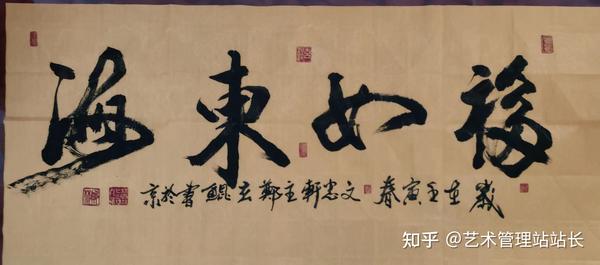 福如東海
歲在壬寅春 文軒主鄭鯤書於京
知乎 @艺术管理站站长